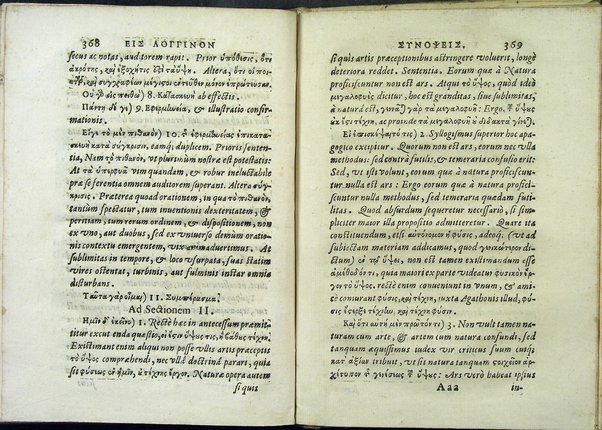 368 ΕΙΣ ΛΟΓΓΙΝΟΝ
secus ac notas, auditorem rapit. Prior ὑπόθεσις, ὅτι
ἀκρότης, καὶ ἐξοχή τις ἐστὶ τὰ ὕψη. Altera, ὅτι οἱ ποιη-
τῶν, καὶ συγγραφέων μέγιστοι ἐντεῦθεν μόνον ἐπρώτευσαν.
Οὐ γὰρ εἰς πειθὼ) 8. Κατασκευὴ ab effectis.
Πάντη δέ γε) 9. Epharmoneia, & illustratio confir-
mationis.
Εἴγε τὸ μὲν πιθανὸν) 10. ἐπικατα-
σκευὴ κατὰ σύγκρισιν, eamq́; duplicem. Prioris senten-
tia, Nam τὸ πιθανὸν, vt plurimùm nostræ est potestatis:
At τὰ ὑπερφυᾶ vim quandam, & robur ineluctabile
præ se ferentia omnem auditorem superant. Altera σύγ-
κρισις. Præterea quoad orationem, in qua τὸ πιθανὸν,
tantùm spectatur, tum inuentionis dexteritatem, &
peritiam, tum rerum ordinem, & dispositionem, non
ex vno, aut duobus, sed ex vniuerso demùm oratio-
nis contextu emergentem, vix animaduertimus. At
sublimitas in tempore, & loco vsurpata, suas statim
vires ostentat, turbinis, aut fulminis instar omnia
disturbans.
Ταῦτα γὰρ οἶμαι) 11. Συμπέρασμα.
Ad Sectionem II.
Ἡμῖν δ' ἐκεῖνο) 1. Rectè hæc in antecessum præmit-
titur excutienda quæstio, εἰ ἔστιν ὕψους τις, ἢ βάθους τέχνη.
Existimant enim aliqui non posse vllis artis præceptis
τὸ ὕψος comprehendi, nec vlla doctrina parari, quia
sit φύσεως ἐν ἡμῖν, οὐ τέχνης ἔργον. Naturæ opera autem
si quis
ΣΥΝΟΨΕΙΣ. 369
si quis artis præceptionibus astringere voluerit, longè
deteriora reddet. Sententia. Eorum quæ à Natura
proficiscuntur non est ars. Atqui τὸ ὕψος, quod ideò
μεγαλοφυὲς dicitur, hoc est granditas, siue sublimitas,
à natura est, γεννᾶται γὰρ τὰ μεγαλοφυῆ: Ergo, τοῦ ὕψους
οὐκ ἔστι τέχνη, ac proinde τὰ μεγαλοφυῆ οὐ διδακτὰ γίνεται.
Εἰ ἐπισκέψαιτό τις) 2. Syllogismus superior hoc apa-
gogico excipitur. Quorum non est ars, eorum nec vlla
methodus: sed contrà futilis, & temeraria confusio erit:
Sed, vt isti volunt, eorum quæ à natura proficiscun-
tur nulla est ars: Ergo eorum quæ à natura profici-
scuntur nulla methodus, sed temeraria quædam futi-
litas. Quod absurdum sequeretur necessariò, si sim-
pliciter maior illa propositio admitteretur. Quare ita
constituendum, etsi αὐτόνομον ἡ φύσις, adeoq́; (vt ad
subiectam materiam addicamus, quod γενικώτερον di-
ctum) ἐν τῷ ὕψει, non est tamen existimandum esse
ἀμέθοδόν τι, quia maiori ex parte videatur φυσικὸν ἔργον
τὸ ὕψος. rectè enim conueniunt in vnum, & ami-
cè coniurant φύσις, καὶ τέχνη, iuxta Agathonis illud, φύ-
σις ἔστερξε τέχνην, καὶ τέχνη φύσιν.
Καὶ ὅτι αὐτὴ μὲν πρῶτόν τι) 3. Non vult tamen na-
turam cum arte, & artem cum natura confundi, sed
tanquam æquissimus iudex vir criticus suum cuiq́;
κατ' ἀξίαν tribuit, vt sit natura tanquam στοιχεῖον ἀρ-
χέτυπον τῆς γενέσεως τοῦ ὕψους: Ars verò habeat ipsius
Aaa in-